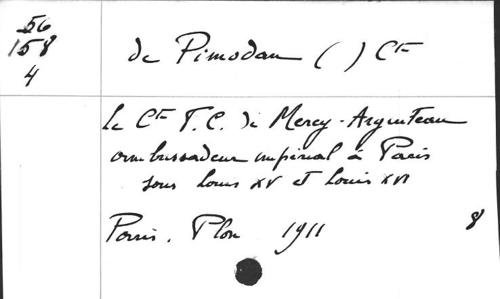 56
158
4
de Pimodan ( ) Cte
le Cte F. C. de Mercy-Argenteau
ambassadeur impérial à Paris
sous Louis XV et Louis XVI
Paris. Plon 1911 8